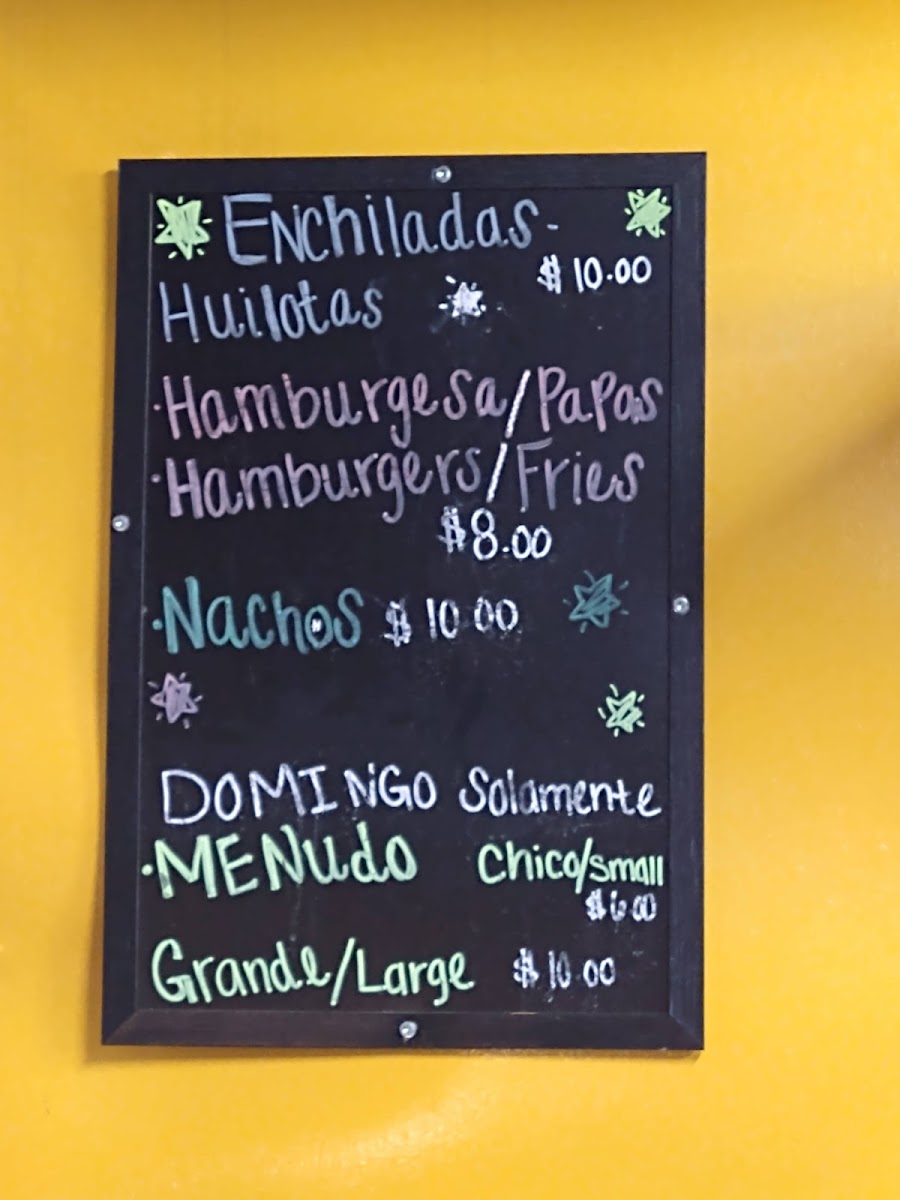 Enchiladas-
$10.00
Huilotas
·Hamburgesa/Papas
·Hamburgers/Fries
$8.00
·Nachos $10.00
DOMINGO Solamente
·MENUdo Chico/small
$6.00
Grande/Large $10.00